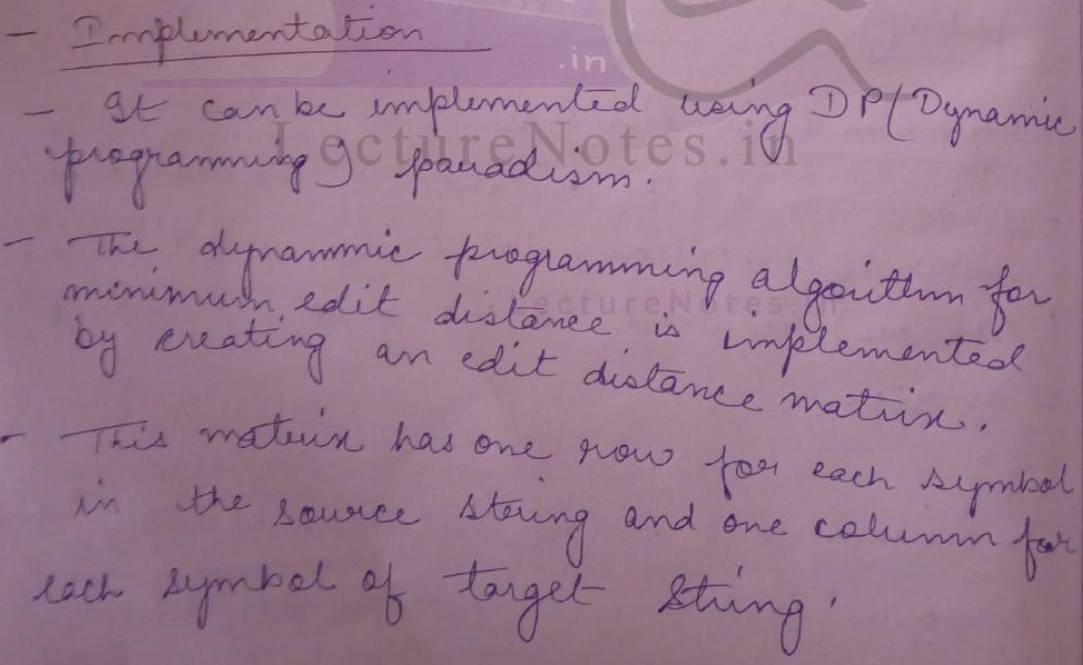 - Implementation
.in
- It can be implemented using DP (Dynamic
LectureNotes.in
programming) paradism.
- The dynammic programming algorithm for
minimum edit distance is implemented
LectureNotes.in
by creating an edit distance matrix.
- This matrix has one row for each symbol
in the source string and one column for
each symbol of target string.